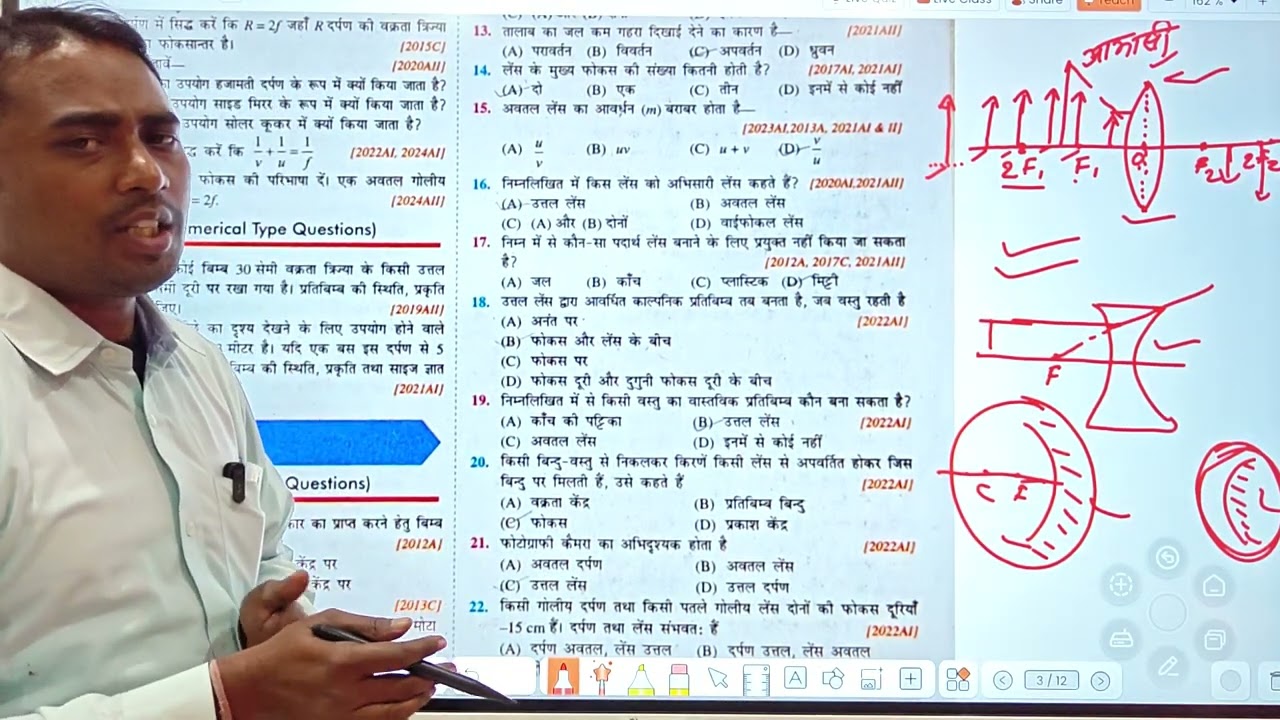 में सिद्ध करें कि R = 2f जहाँ R दर्पण की वक्रता त्रिज्या
फोकसान्तर है। [2015C]
[2020AII]
उपयोग हजामती दर्पण के रूप में क्यों किया जाता है?
उपयोग साइड मिरर के रूप में क्यों किया जाता है?
उपयोग सोलर कूकर में क्यों किया जाता है?
करें कि 1/v + 1/u = 1/f [2022AI, 2024AI]
फोकस की परिभाषा दें। एक अवतल गोलीय
= 2f. [2024AII]
merical Type Questions)
कोई बिम्ब 30 सेमी वक्रता त्रिज्या के किसी उत्तल
दूरी पर रखा गया है। प्रतिबिम्ब की स्थिति, प्रकृति
[2019AII]
का दृश्य देखने के लिए उपयोग होने वाले
मीटर है। यदि एक बस इस दर्पण से 5
की स्थिति, प्रकृति तथा साइज ज्ञात
[2021AI]
Questions)
का प्राप्त करने हेतु बिम्ब
[2012A]
केंद्र पर
केंद्र पर
[2013C]
मोटा
13. तालाब का जल कम गहरा दिखाई देने का कारण है— [2021AII]
(A) परावर्तन (B) विवर्तन (C) अपवर्तन (D) ध्रुवन
14. लेंस के मुख्य फोकस की संख्या कितनी होती है? [2017AI, 2021AI]
(A) दो (B) एक (C) तीन (D) इनमें से कोई नहीं
15. अवतल लेंस का आवर्धन (m) बराबर होता है—
[2023AI,2013A, 2021AI & II]
(A) u/v (B) uv (C) u + v (D) v/u
16. निम्नलिखित में किस लेंस को अभिसारी लेंस कहते हैं? [2020AI,2021AII]
(A) उत्तल लेंस (B) अवतल लेंस
(C) (A) और (B) दोनों (D) वाईफोकल लेंस
17. निम्न में से कौन-सा पदार्थ लेंस बनाने के लिए प्रयुक्त नहीं किया जा सकता
है? [2012A, 2017C, 2021AII]
(A) जल (B) काँच (C) प्लास्टिक (D) मिट्टी
18. उत्तल लेंस द्वारा आवर्धित काल्पनिक प्रतिबिम्ब तब बनता है, जब वस्तु रहती है
(A) अनंत पर [2022AI]
(B) फोकस और लेंस के बीच
(C) फोकस पर
(D) फोकस दूरी और दुगुनी फोकस दूरी के बीच
19. निम्नलिखित में से किसी वस्तु का वास्तविक प्रतिबिम्ब कौन बना सकता है?
(A) काँच की पट्टिका (B) उत्तल लेंस [2022AI]
(C) अवतल लेंस (D) इनमें से कोई नहीं
20. किसी बिन्दु-वस्तु से निकलकर किरणें किसी लेंस से अपवर्तित होकर जिस
बिन्दु पर मिलती हैं, उसे कहते हैं [2022AI]
(A) वक्रता केंद्र (B) प्रतिबिम्ब बिन्दु
(C) फोकस (D) प्रकाश केंद्र
21. फोटोग्राफी कैमरा का अभिदृश्यक होता है [2022AI]
(A) अवतल दर्पण (B) अवतल लेंस
(C) उत्तल लेंस (D) उत्तल दर्पण
22. किसी गोलीय दर्पण तथा किसी पतले गोलीय लेंस दोनों की फोकस दूरियाँ
–15 cm हैं। दर्पण तथा लेंस संभवतः हैं [2022AI]
(A) दर्पण अवतल, लेंस उत्तल (B) दर्पण उत्तल, लेंस अवतल
Live Class Share Teach 162 %
आभासी
2F₁ F₁ O F₂ 2F₂
F
C F
3 / 12